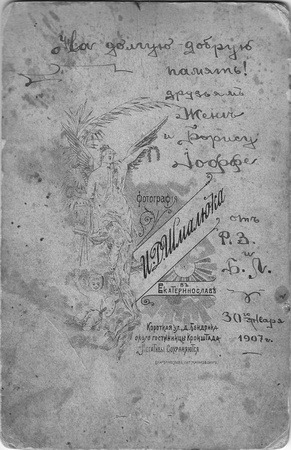 На долгую добрую
память!
друзьям
Жене
и Борису
Iоффе
отъ
Р. З.
и
Б. Л.
30 Января
1907 г.
Фотографія
И.Г. Шмалюка
въ
Екатеринославѣ
Короткая ул. д. Бендрика
около гостинницы Кронштада.
Негативы сохраняются